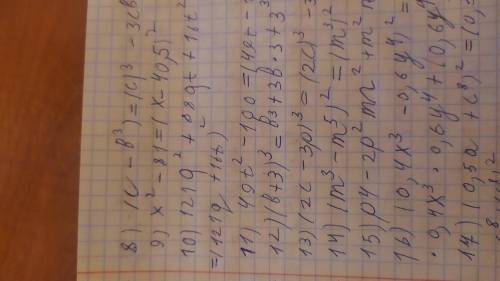 8) (c - в³) = (c)³ - 3cв
9) x² - 81 = (x - 40,5)²
10) 121q² + 88qt + 16t²
= (121q + 16t)²
11) 49t² - 190 = (49t -
12) (в+3)³ = в³ + 3в · 3 + 3
13) (2c - 3p)³ = (2c)³ - 3
14) (m³ - m⁵)² = (m³)²
15) p4 - 2p² m² + m²
16) (0,4x³ - 0,6y⁴) =
· 0,4x³ · 0,6y⁴ + (0,6y
17) (0,5a + c8)² = (0,5